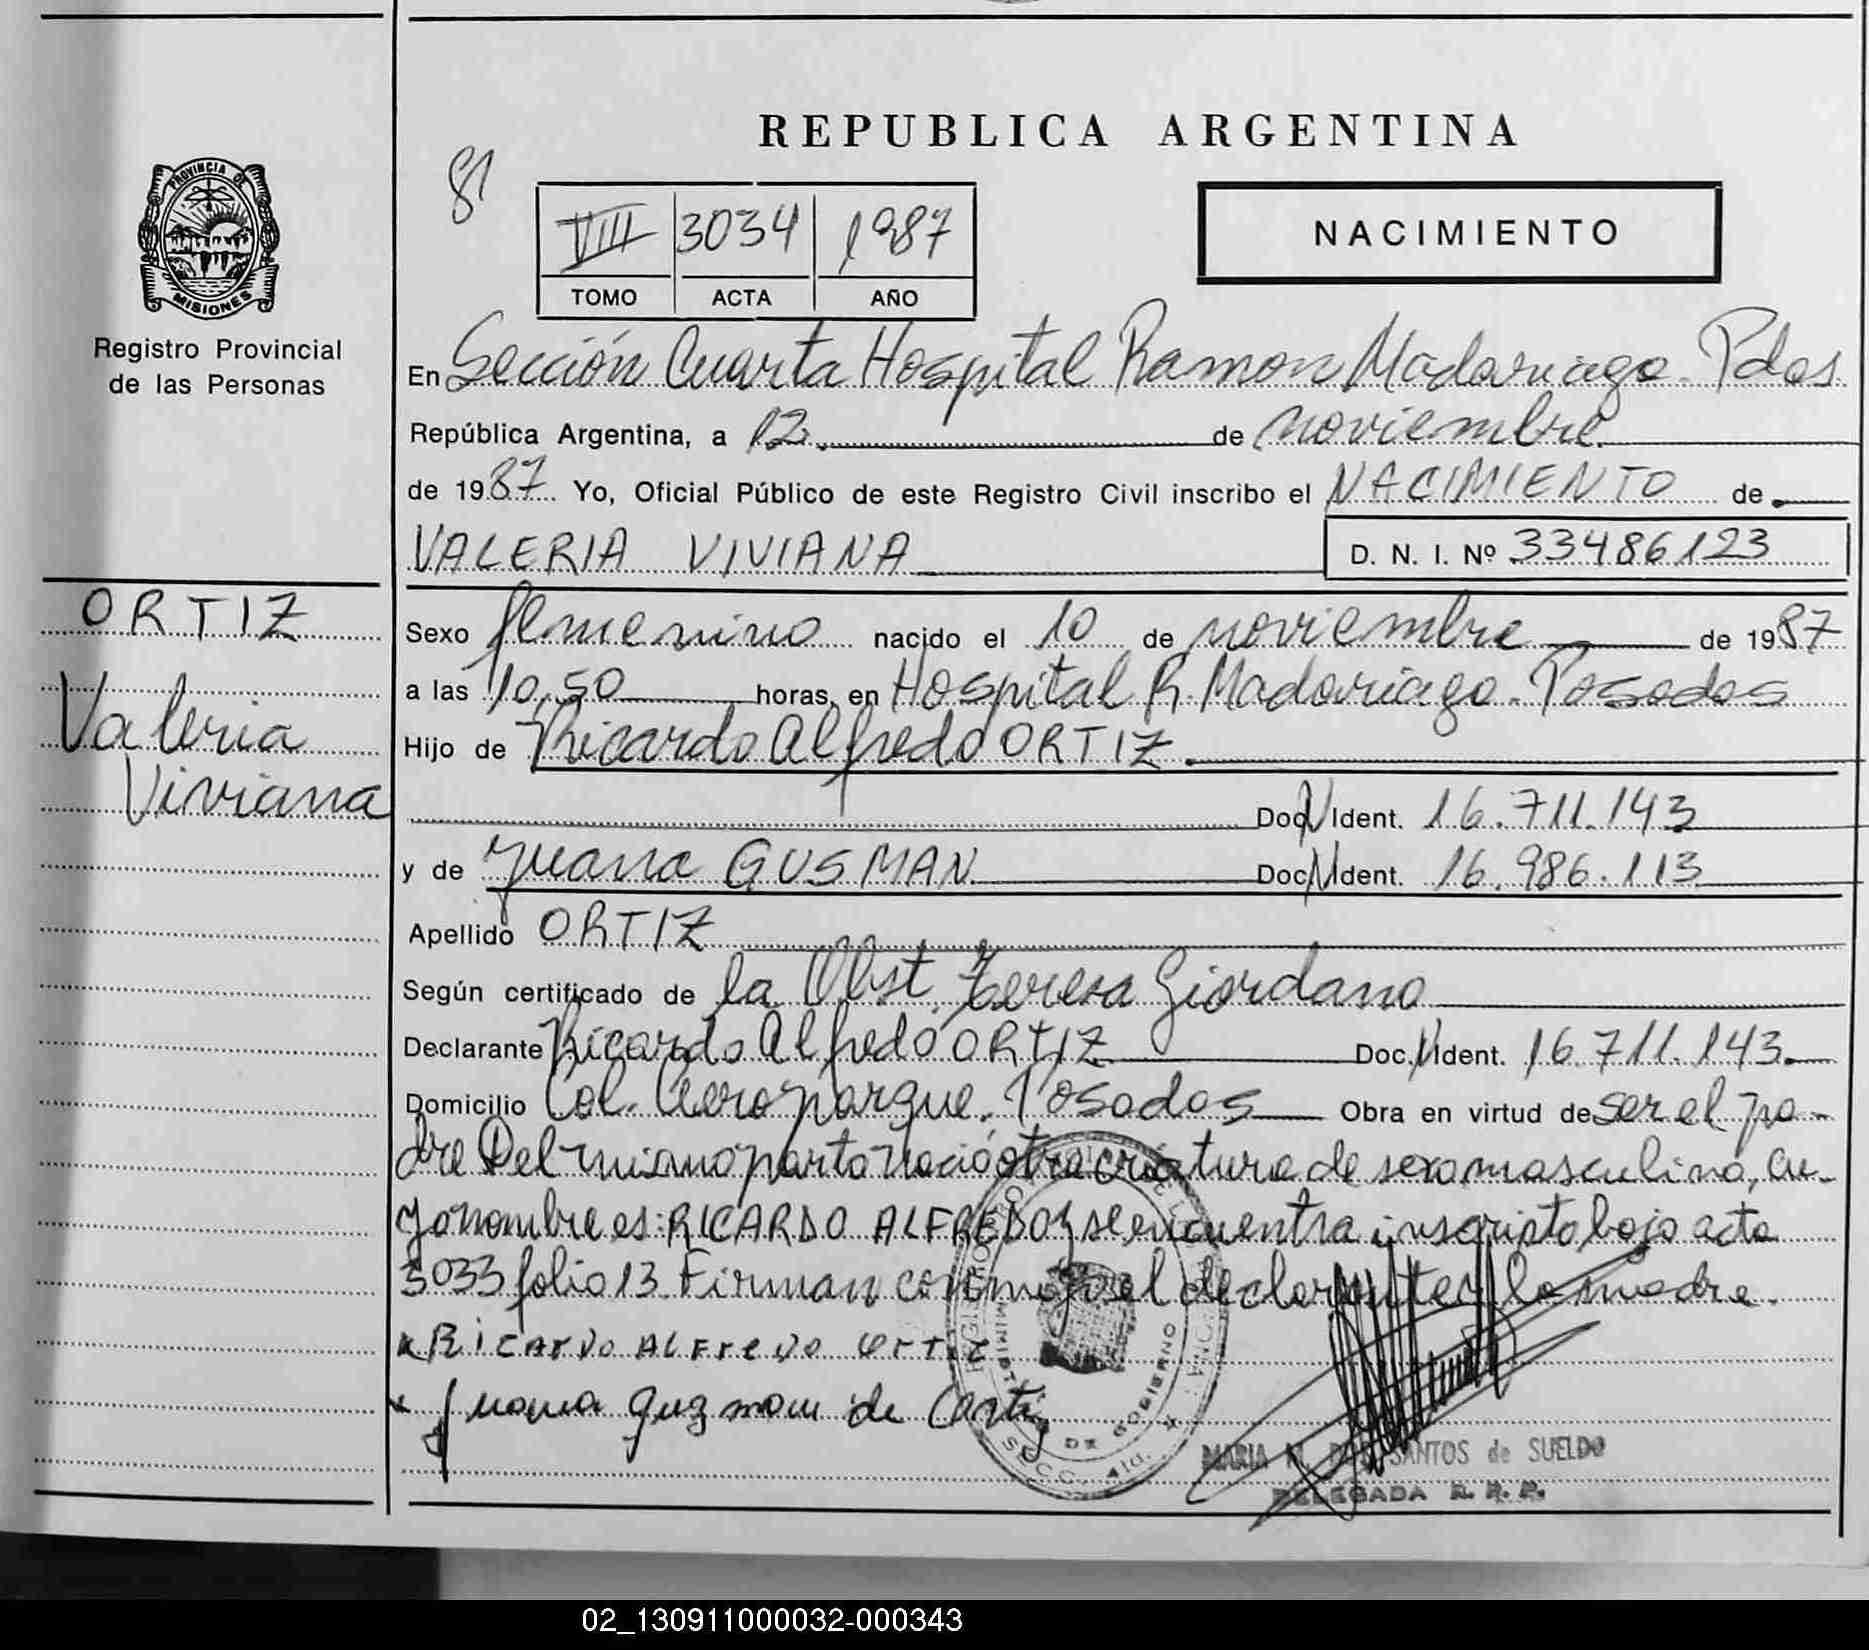 REPUBLICA ARGENTINA
81
VIII 3034 1987
TOMO ACTA AÑO
NACIMIENTO
PROVINCIA DE
MISIONES
Registro Provincial
de las Personas
En Sección Cuarta Hospital Ramon Madariaga. Pdas.
República Argentina, a 12 de noviembre
de 1987 Yo, Oficial Público de este Registro Civil inscribo el NACIMIENTO de
VALERIA VIVIANA
D. N. I. Nº 33486123
ORTIZ
Valeria
Viviana
Sexo femenino nacido el 10 de noviembre de 1987
a las 10,50 horas, en Hospital R. Madariaga. Posadas
Hijo de Ricardo Alfredo ORTIZ
Doc. N Ident. 16.711.143
y de Juana GUSMAN Doc. N Ident. 16.986.113
Apellido ORTIZ
Según certificado de la Obst. Teresa Giordano
Declarante Ricardo Alfredo ORTIZ Doc. N Ident. 16.711.143
Domicilio Col. Aeroparque. Posadas Obra en virtud de ser el pa-
dre Del mismo parto nació otra criatura de sexo masculino, cu-
yo nombre es: RICARDO ALFREDO y se encuentra inscripto bajo acta
3033 folio 13. Firman conmigo el declarante y la madre.
x Ricardo Alfredo Ortiz
x Juana Guzman de Ortiz
MINISTERIO DE GOBIERNO
SECC. 4ta.
MARIA M. DOS SANTOS de SUELDO
DELEGADA R. P. P.
02_130911000032-000343